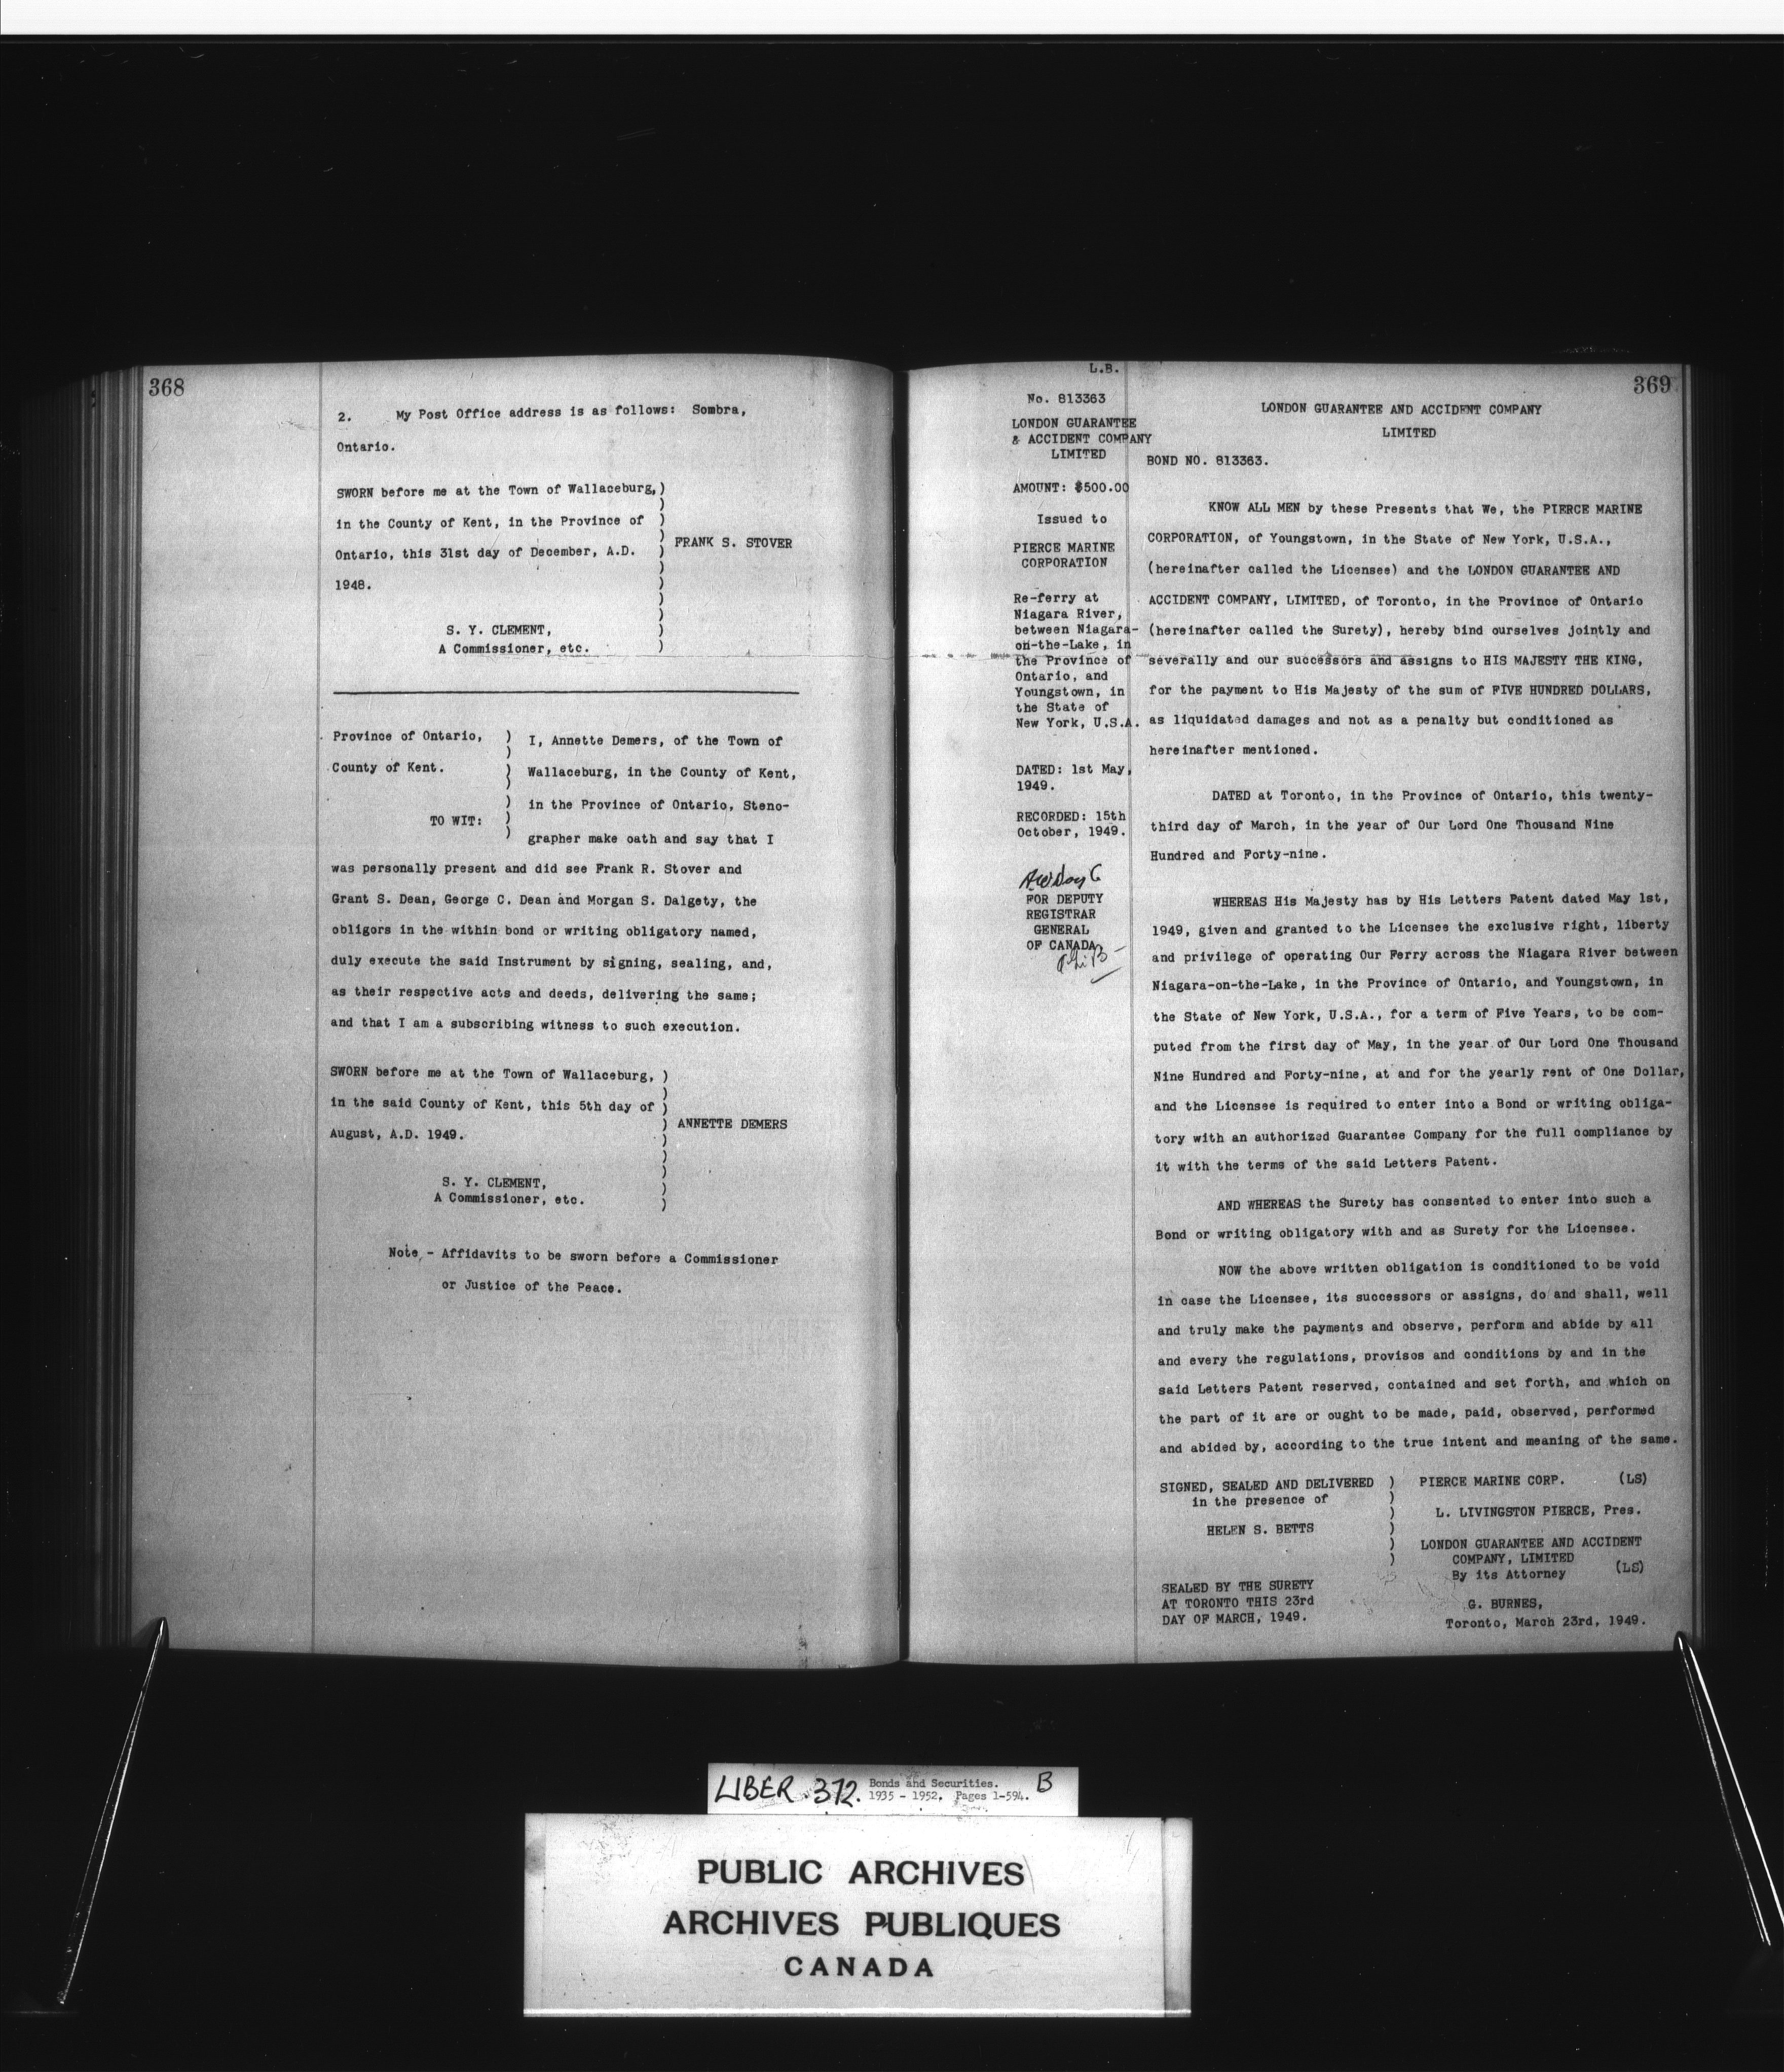 368
2. My Post Office address is as follows: Sombra,
Ontario.
SWORN before me at the Town of Wallaceburg, )
in the County of Kent, in the Province of )
Ontario, this 31st day of December, A.D. ) FRANK S. STOVER
1948. )
S. Y. CLEMENT, )
A Commissioner, etc. )
Province of Ontario, ) I, Annette Demers, of the Town of
County of Kent. ) Wallaceburg, in the County of Kent,
) in the Province of Ontario, Steno-
TO WIT: )
) grapher make oath and say that I
was personally present and did see Frank R. Stover and
Grant S. Dean, George C. Dean and Morgan S. Dalgety, the
obligors in the within bond or writing obligatory named,
duly execute the said Instrument by signing, sealing, and,
as their respective acts and deeds, delivering the same;
and that I am a subscribing witness to such execution.
SWORN before me at the Town of Wallaceburg, )
in the said County of Kent, this 5th day of )
) ANNETTE DEMERS
August, A.D. 1949. )
S. Y. CLEMENT, )
A Commissioner, etc. )
Note - Affidavits to be sworn before a Commissioner
or Justice of the Peace.
L.B.
No. 813363
LONDON GUARANTEE
& ACCIDENT COMPANY
LIMITED
AMOUNT: $500.00
Issued to
PIERCE MARINE
CORPORATION
Re-ferry at
Niagara River,
between Niagara-
on-the-Lake, in
the Province of
Ontario, and
Youngstown, in
the State of
New York, U.S.A.
DATED: 1st May,
1949.
RECORDED: 15th
October, 1949.
FOR DEPUTY
REGISTRAR
GENERAL
OF CANADA
369
LONDON GUARANTEE AND ACCIDENT COMPANY
LIMITED
BOND NO. 813363.
KNOW ALL MEN by these Presents that We, the PIERCE MARINE
CORPORATION, of Youngstown, in the State of New York, U.S.A.,
(hereinafter called the Licensee) and the LONDON GUARANTEE AND
ACCIDENT COMPANY, LIMITED, of Toronto, in the Province of Ontario
(hereinafter called the Surety), hereby bind ourselves jointly and
severally and our successors and assigns to HIS MAJESTY THE KING,
for the payment to His Majesty of the sum of FIVE HUNDRED DOLLARS,
as liquidated damages and not as a penalty but conditioned as
hereinafter mentioned.
DATED at Toronto, in the Province of Ontario, this twenty-
third day of March, in the year of Our Lord One Thousand Nine
Hundred and Forty-nine.
WHEREAS His Majesty has by His Letters Patent dated May 1st,
1949, given and granted to the Licensee the exclusive right, liberty
and privilege of operating Our Ferry across the Niagara River between
Niagara-on-the-Lake, in the Province of Ontario, and Youngstown, in
the State of New York, U.S.A., for a term of Five Years, to be com-
puted from the first day of May, in the year of Our Lord One Thousand
Nine Hundred and Forty-nine, at and for the yearly rent of One Dollar,
and the Licensee is required to enter into a Bond or writing obliga-
tory with an authorized Guarantee Company for the full compliance by
it with the terms of the said Letters Patent.
AND WHEREAS the Surety has consented to enter into such a
Bond or writing obligatory with and as Surety for the Licensee.
NOW the above written obligation is conditioned to be void
in case the Licensee, its successors or assigns, do and shall, well
and truly make the payments and observe, perform and abide by all
and every the regulations, provisos and conditions by and in the
said Letters Patent reserved, contained and set forth, and which on
the part of it are or ought to be made, paid, observed, performed
and abided by, according to the true intent and meaning of the same.
SIGNED, SEALED AND DELIVERED ) PIERCE MARINE CORP. (LS)
in the presence of )
) L. LIVINGSTON PIERCE, Pres.
HELEN S. BETTS )
) LONDON GUARANTEE AND ACCIDENT
) COMPANY, LIMITED
By its Attorney (LS)
SEALED BY THE SURETY
AT TORONTO THIS 23rd G. BURNES,
DAY OF MARCH, 1949. Toronto, March 23rd, 1949.
LIBER. 372. Bonds and Securities. B
1935 - 1952. Pages 1-594.
PUBLIC ARCHIVES
ARCHIVES PUBLIQUES
CANADA